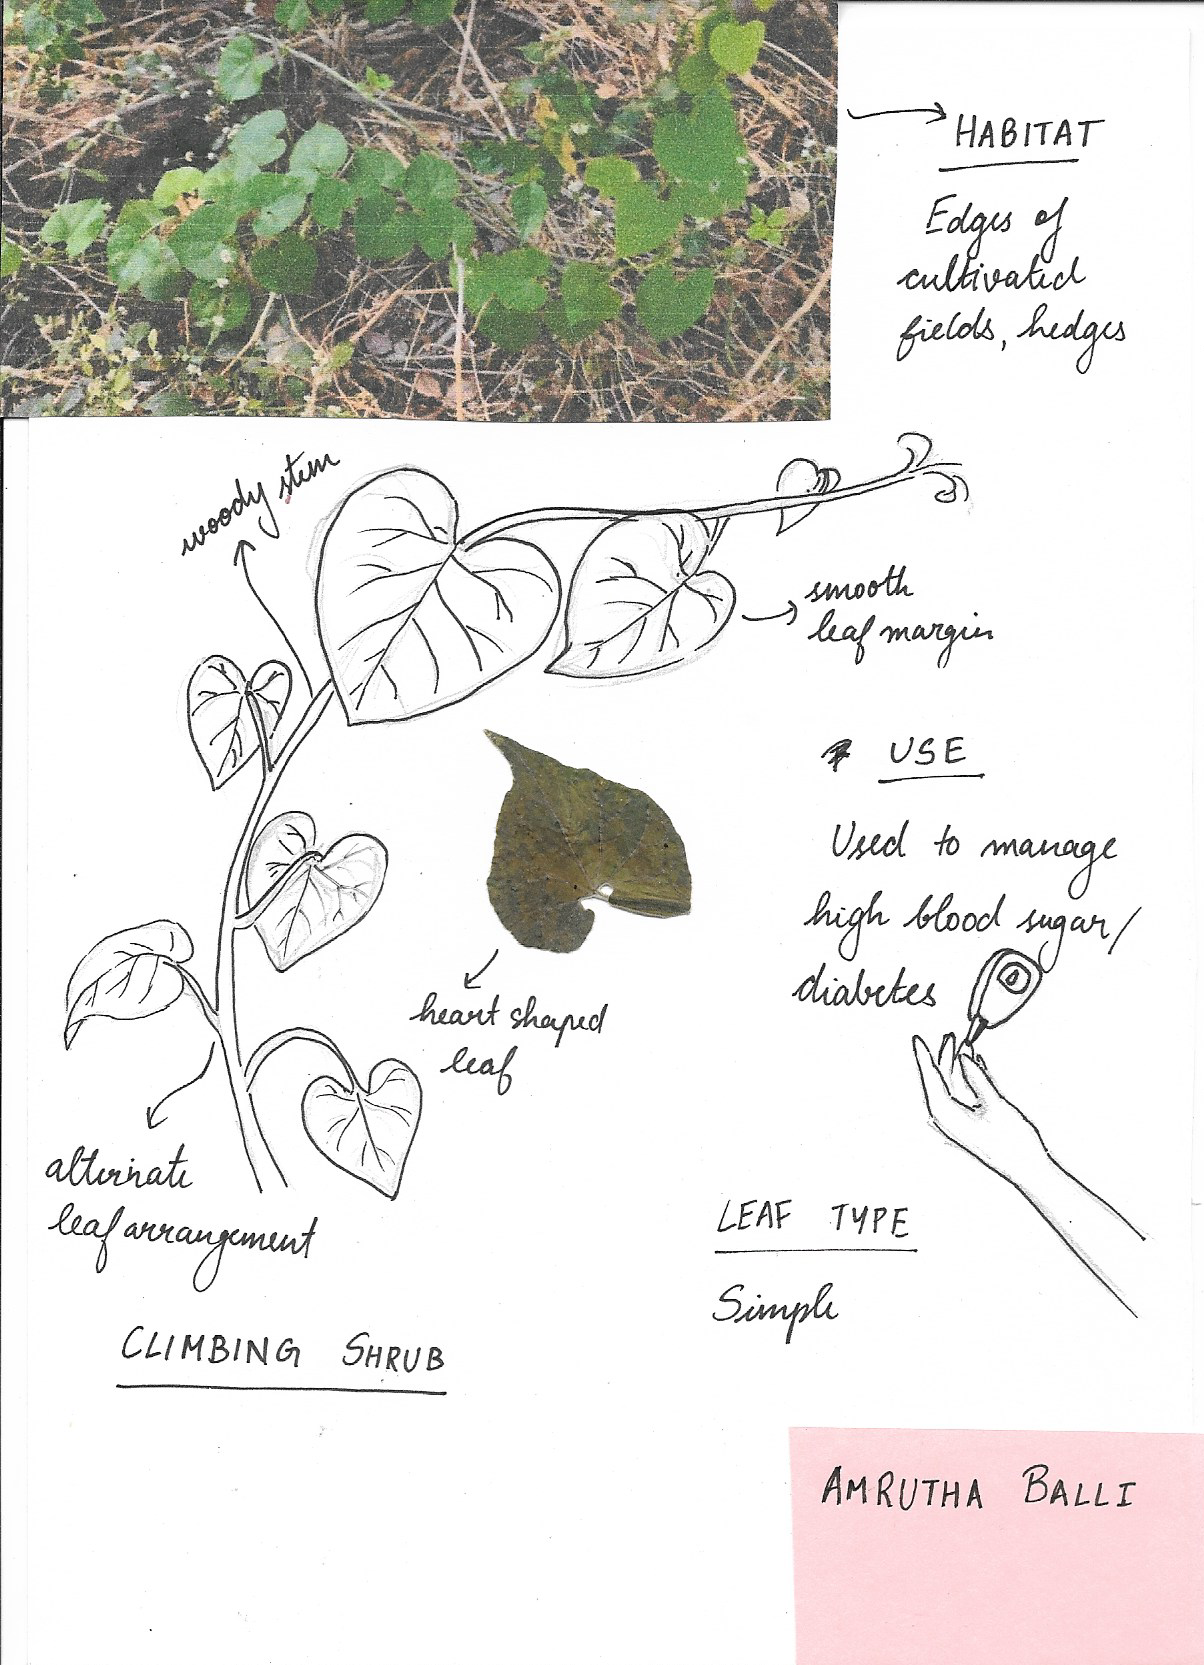 HABITAT
Edges of
cultivated
fields, hedges
woody stem
smooth
leaf margin
USE
Used to manage
high blood sugar/
diabetes
heart shaped
leaf
alternate
leaf arrangement
LEAF TYPE
Simple
CLIMBING SHRUB
AMRUTHA BALLI